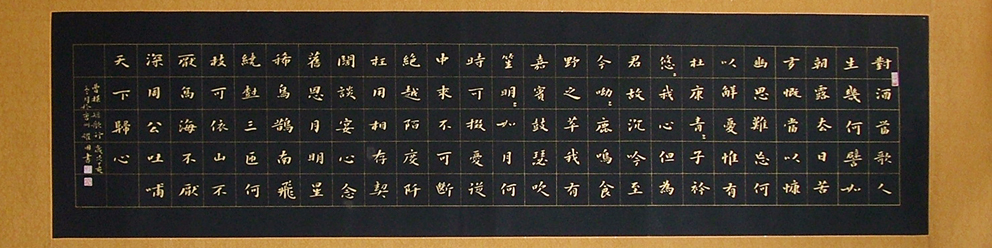 對酒當歌人
生幾何譬如
朝露去日苦
多慨當以慷
幽思難忘何
以解憂惟有
杜康青〻子衿
悠〻我心但為
君故沉吟至
今呦〻鹿鳴食
野之苹我有
嘉賓鼓瑟吹
笙明〻如月何
時可掇憂從
中來不可斷
絕越陌度阡
枉用相存契
闊談宴心念
舊恩月明星
稀烏鵲南飛
繞樹三匝何
枝可依山不
厭高海不厭
深周公吐哺
天下歸心
曹操短歌行
書